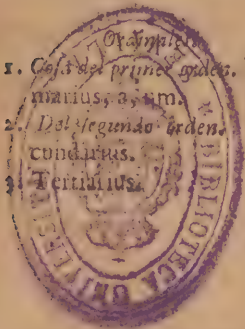 Exemplo
1. Cosa del primer orden.
marius, a, um.
2. Del segundo orden.
cundarius.
3. Tertiarius.
BIBLIOTECA UNIVERSI